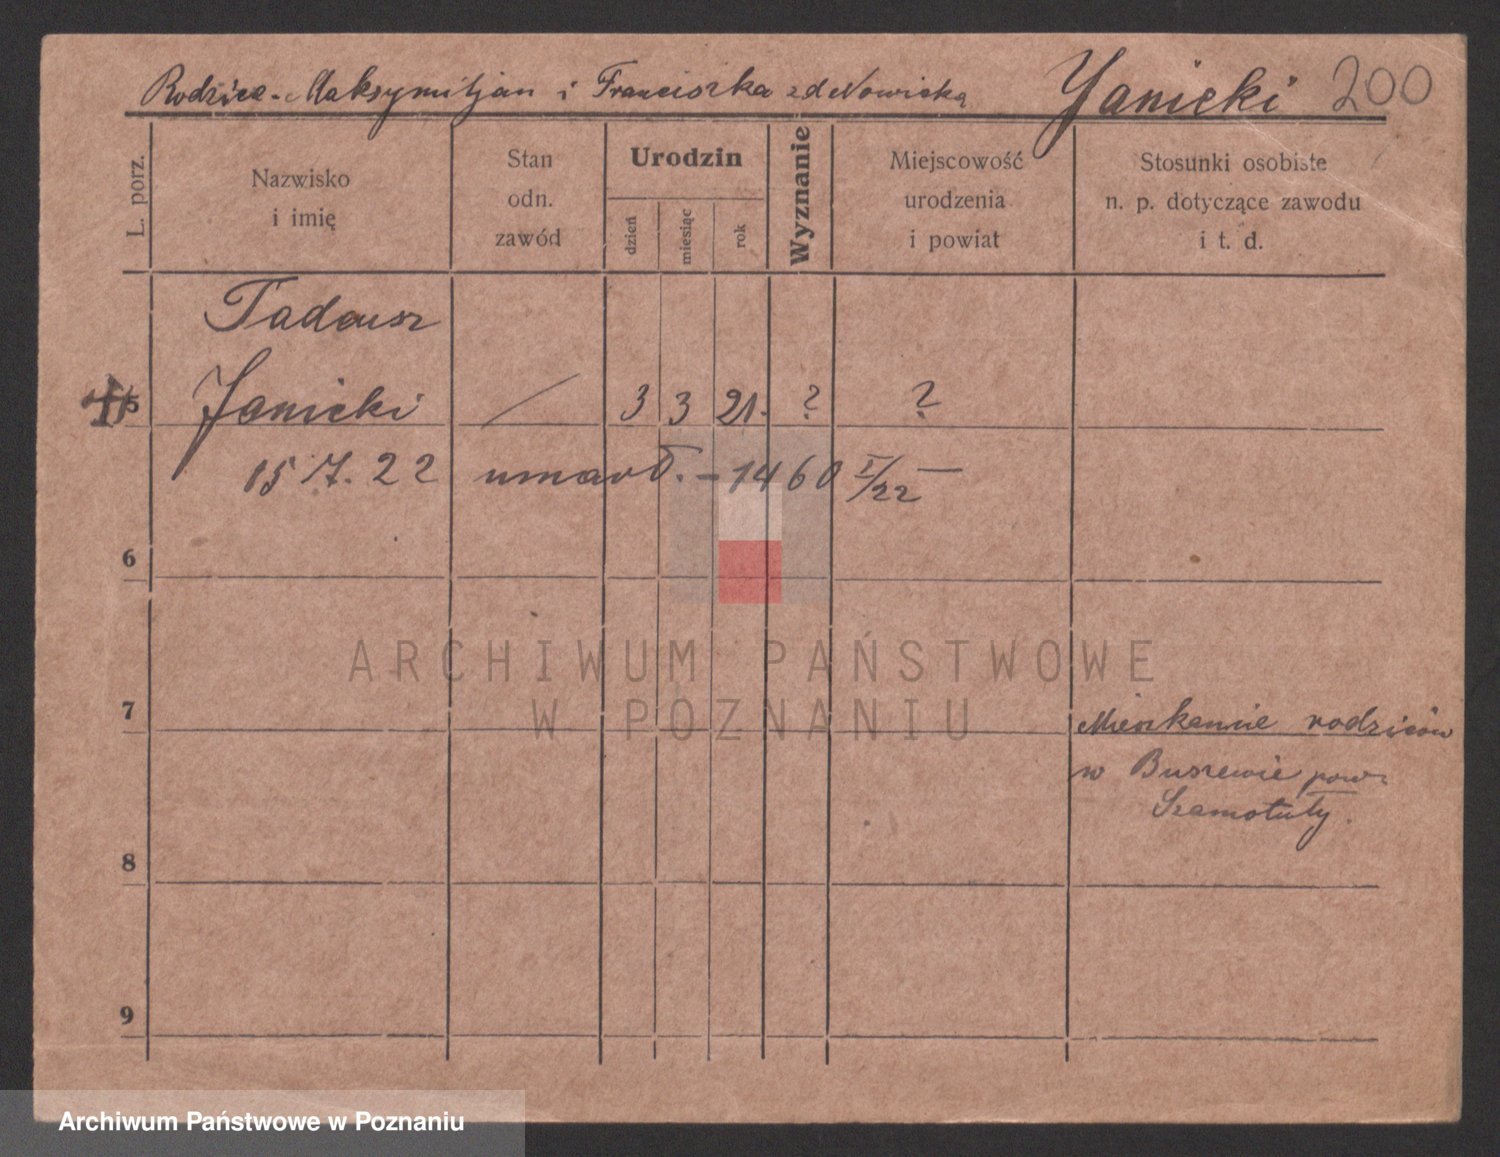 Rodzice - Maksymiljan i Franciszka z d Nowicka Janicki 200
L. porz.
Nazwisko
i imię
Stan
odn.
zawód
Urodzin
dzień
miesiąc
rok
Wyznanie
Miejscowość
urodzenia
i powiat
Stosunki osobiste
n. p. dotyczące zawodu
i t. d.
Tadeusz
5 Janicki / 3 3 21. ? ?
15 7. 22 umarł. - 1460 I/22 —
6
ARCHIWUM PAŃSTWOWE
W POZNANIU
7 Mieszkanie rodziców
w Buszewie pow.
Szamotuły.
8
9
Archiwum Państwowe w Poznaniu